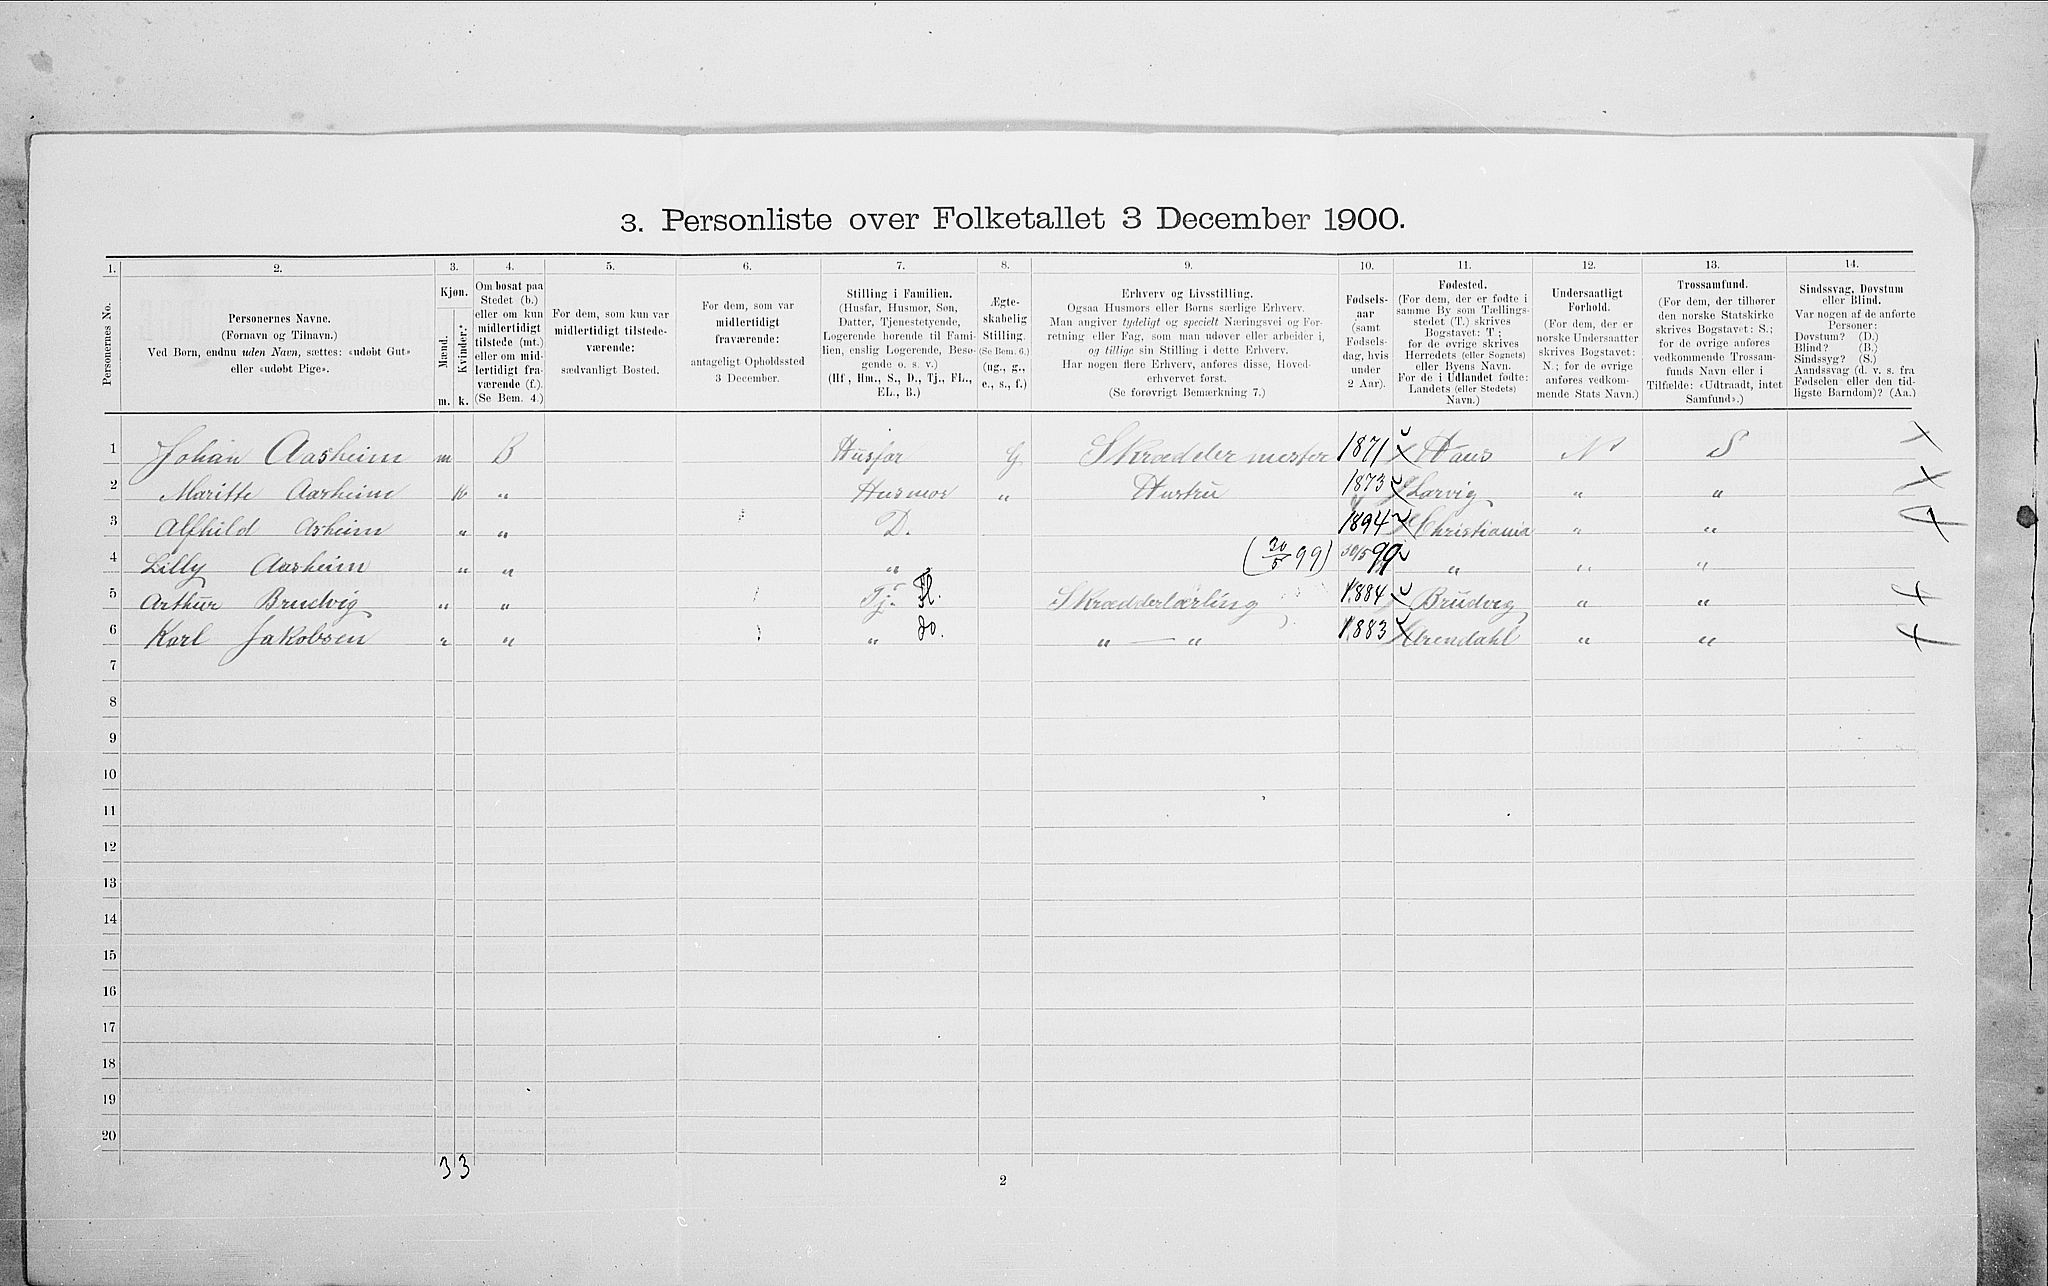 3. Personliste over Folketallet 3 December 1900.
1. 2. 3. 4. 5. 6. 7. 8. 9. 10. 11. 12. 13. 14.
Personernes No.
Personernes Navne.
(Fornavn og Tilnavn.)
Ved Børn, endnu uden Navn, sættes: «udøbt Gut»
eller «udøbt Pige».
Kjøn.
Mænd.
Kvinder.*
m. k.
Om bosat paa
Stedet (b.)
eller om kun
midlertidigt
tilstede (mt.)
eller om mid-
lertidigt fra-
værende (f.).
(Se Bem. 4.)
For dem, som kun var
midlertidigt tilstede-
værende:
sædvanligt Bosted.
For dem, som var
midlertidigt
fraværende:
antageligt Opholdssted
3 December.
Stilling i Familien.
(Husfar, Husmor, Søn,
Datter, Tjenestetyende,
Logerende hørende til Fami-
lien, enslig Logerende, Besø-
gende o. s. v.)
(Hf, Hm., S., D., Tj., FL.,
EL., B.)
Ægte-
skabelig
Stilling.
(Se Bem. 6.)
(ug., g.,
e., s., f.)
Erhverv og Livsstilling.
Ogsaa Husmors eller Børns særlige Erhverv.
Man angiver tydeligt og specielt Næringsvei og For-
retning eller Fag, som man udøver eller arbeider i,
og tillige sin Stilling i dette Erhverv.
Har nogen flere Erhverv, anføres disse, Hoved-
erhvervet først.
(Se forøvrigt Bemærkning 7.)
Fødsels-
aar
(samt
Fødsels-
dag, hvis
under
2 Aar).
Fødested.
(For dem, der er fødte i
samme By som Tællings-
stedet (T.) skrives
Bogstavet: T;
for de øvrige skrives
Herredets (eller Sognets)
eller Byens Navn.
For de i Udlandet fødte:
Landets (eller Stedets)
Navn.)
Undersaatligt
Forhold.
(For dem, der er
norske Undersaatter
skrives Bogstavet:
N.; for de øvrige
anføres vedkom-
mende Stats Navn.)
Trossamfund.
(For dem, der tilhører
den norske Statskirke
skrives Bogstavet: S.;
for de øvrige anføres
vedkommende Trossam-
funds Navn eller i
Tilfælde: «Udtraadt, intet
Samfund».)
Sindssvag, Døvstum
eller Blind.
Var nogen af de anførte
Personer:
Døvstum? (D.)
Blind? (B.)
Sindssyg? (S.)
Aandssvag (d. v. s. fra
Fødselen eller den tid-
ligste Barndom)? (Aa.)
1 Johan Aasheim m B Husfar G Skrædder mester 1871 Haus N S
2 Maritte Aasheim k " Husmor " Hustru 1873 Larvig " "
3 Alfhild Asheim " " D. 1894 Christiania " "
4 Lilly Aasheim " " " (20/5 99) 30/5 99 " " "
5 Arthur Brudvig " " Tj. Fl. Skrædderlærling 1884 Brudvig " "
6 Karl Jakobsen " " " do. " — " 1883 Arendahl " "
7
8
9
10
11
12
13
14
15
16
17
18
19
20
3 3
2